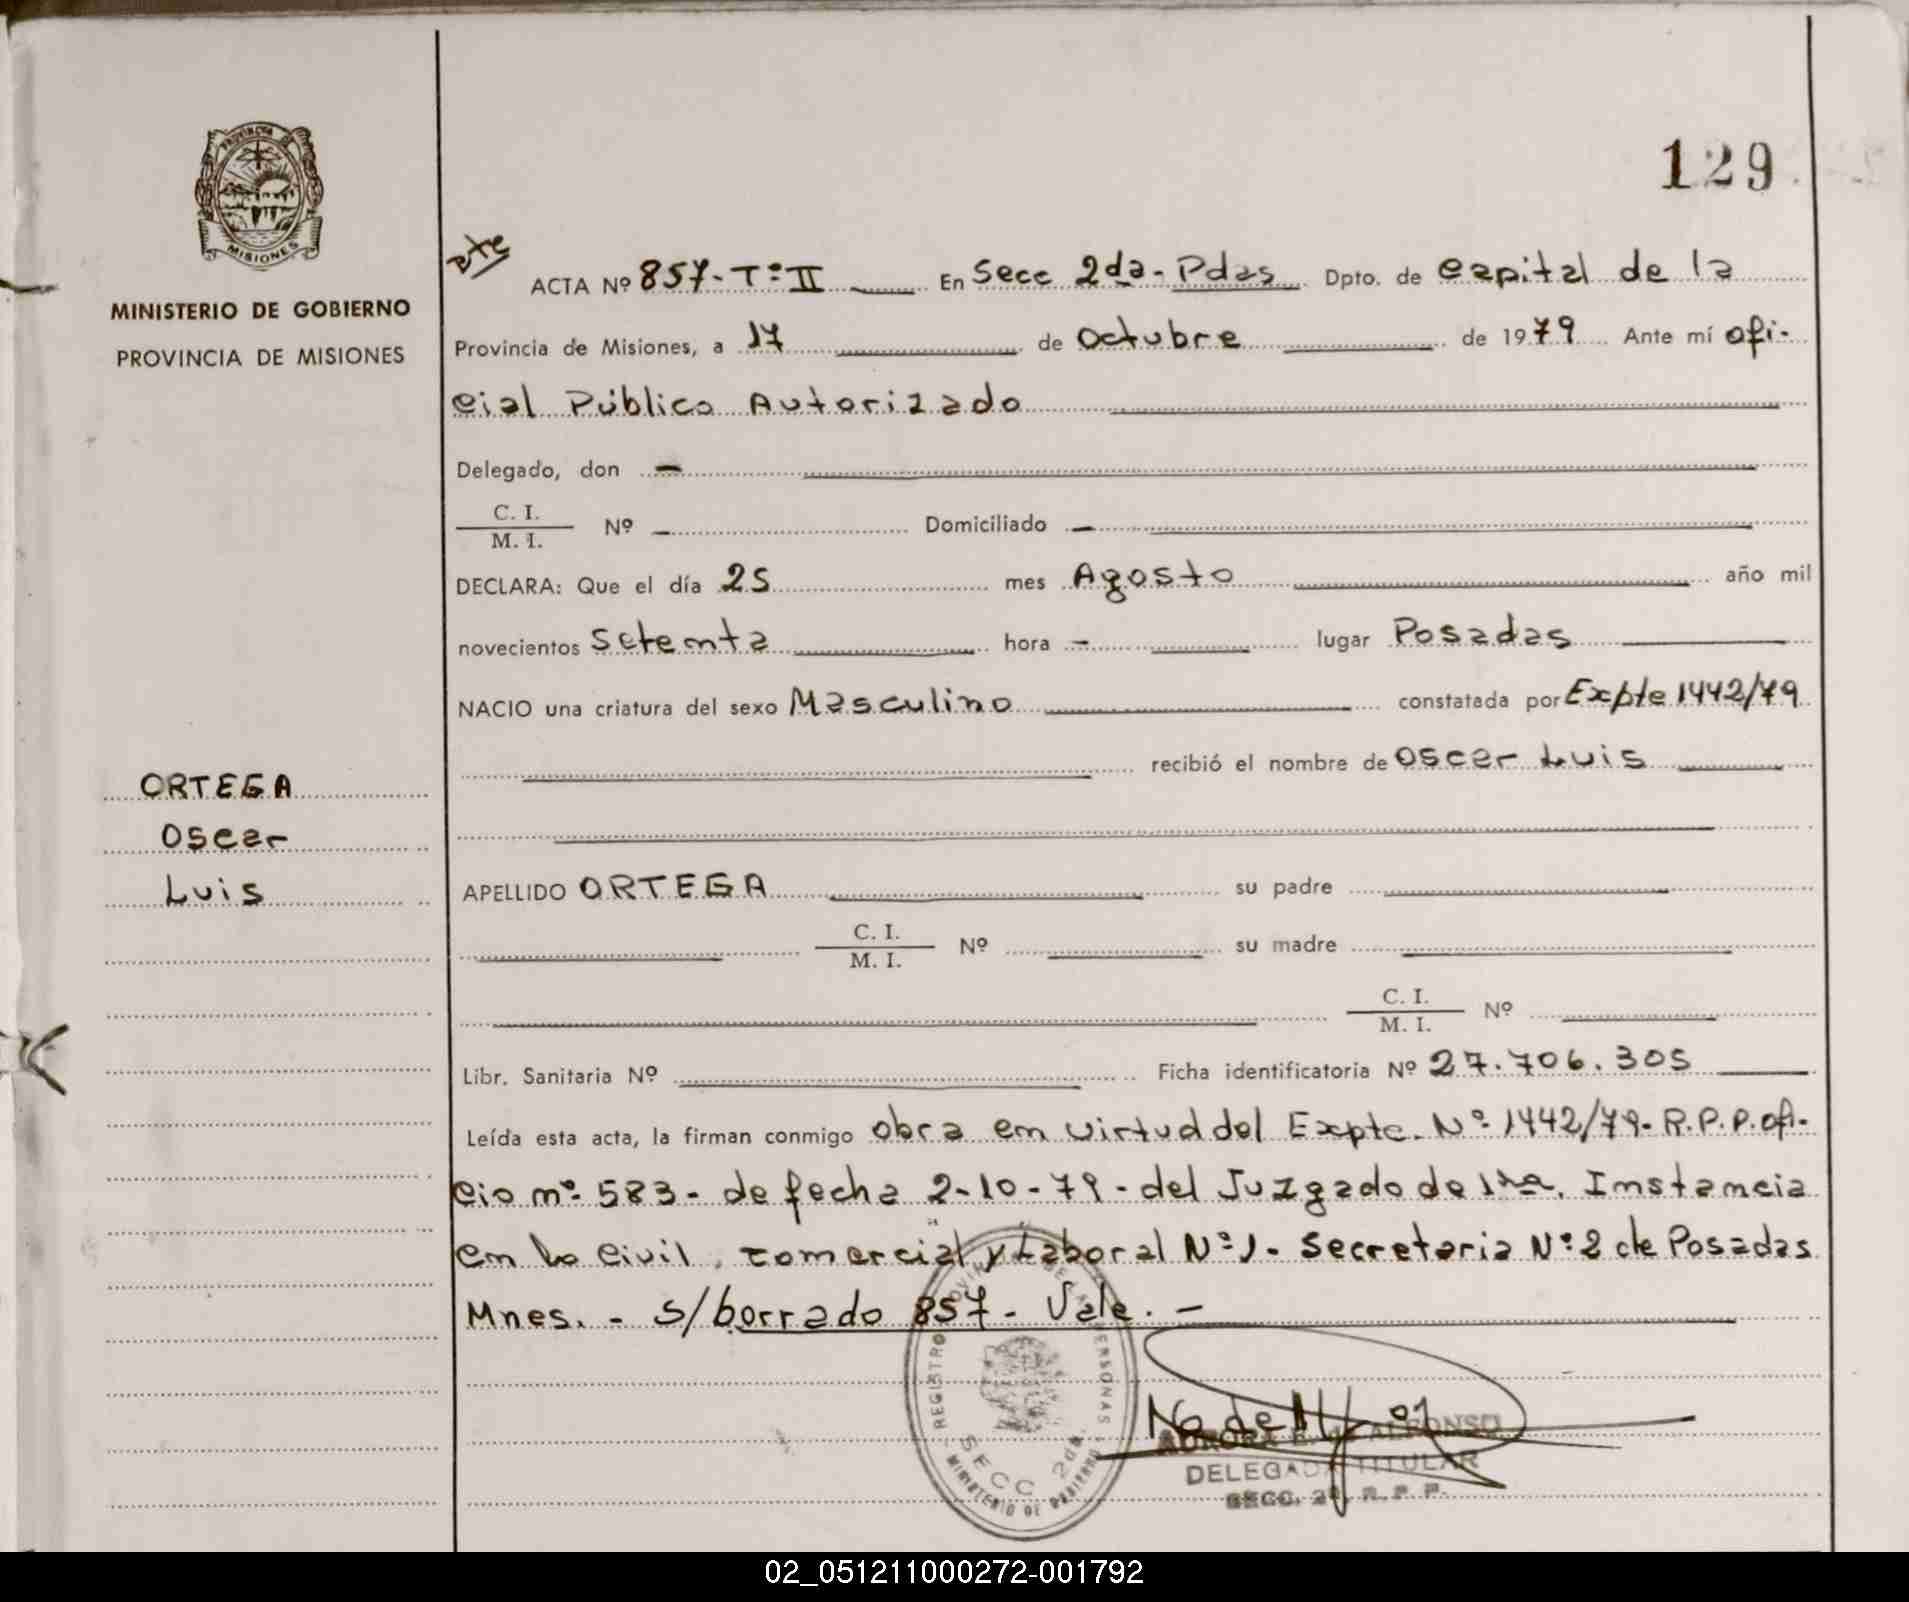 PROVINCIA DE
MISIONES
MINISTERIO DE GOBIERNO
PROVINCIA DE MISIONES
129
ACTA Nº 857-Tº II En Secc 2da - Pdas Dpto. de capital de la
Provincia de Misiones, a 17 de Octubre de 1979 Ante mí ofi-
cial Público Autorizado
Delegado, don —
C. I.
M. I. Nº — Domiciliado —
DECLARA: Que el día 25 mes Agosto año mil
novecientos Setenta hora - lugar Posadas
NACIO una criatura del sexo Masculino constatada por Expte 1442/79
recibió el nombre de Oscar Luis
ORTEGA
Oscar
Luis
APELLIDO ORTEGA su padre
C. I.
M. I. Nº su madre
C. I.
M. I. Nº
Libr. Sanitaria Nº Ficha identificatoria Nº 27.706.305
Leída esta acta, la firman conmigo obra en virtud del Expte. Nº 1442/79- R.P.P. ofi-
cio nº 583- de fecha 2-10-79- del Juzgado de 1ra. Instancia
en lo Civil, comercial y Laboral Nº 1- Secretaria Nº 2 de Posadas
Mnes. - S/borrado 857- Vale. -
REGISTRO PROVINCIAL DE LAS PERSONAS
SECC 2da.
MINISTERIO DE GOBIERNO
AURORA ALFONSO
DELEGADA TITULAR
SECC. 2ª. R. P. P.
02_051211000272-001792